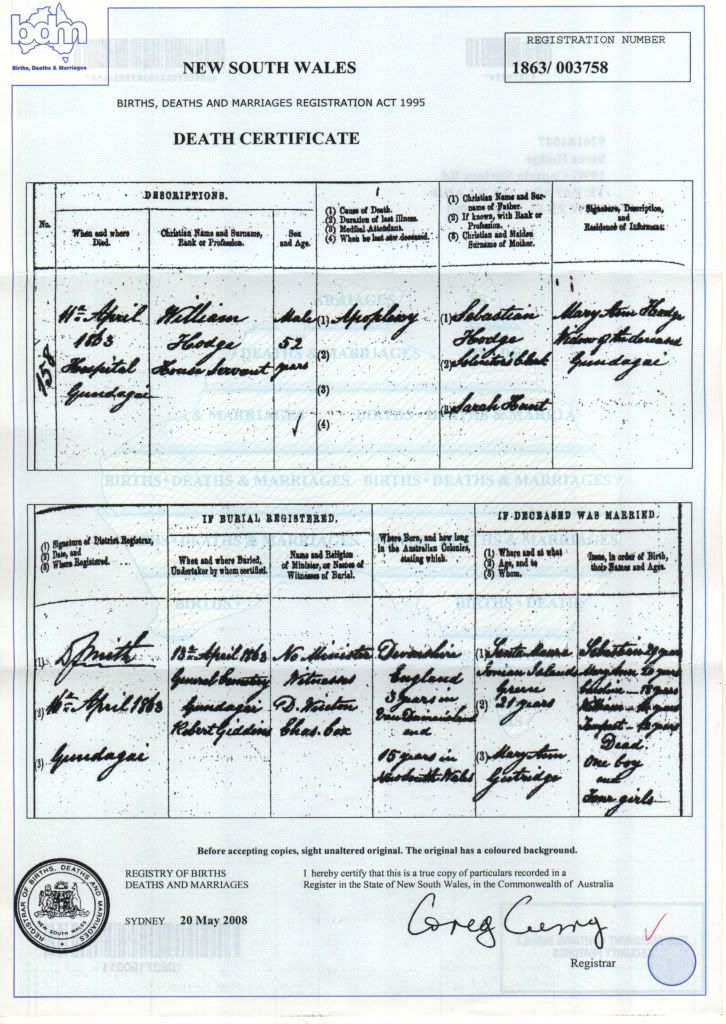 bdm
Births, Deaths & Marriages
REGISTRATION NUMBER
1863/ 003758
NEW SOUTH WALES
BIRTHS, DEATHS AND MARRIAGES REGISTRATION ACT 1995
DEATH CERTIFICATE
DESCRIPTIONS.
No.
When and where
Died.
Christian Name and Surname,
Rank or Profession.
Sex
and Age.
(1) Cause of Death.
(2) Duration of last Illness.
(3) Medical Attendant.
(4) When he last saw deceased.
(1) Christian Name and Sur-
name of Father.
(2) If known, with Rank or
Profession.
(3) Christian and Maiden
Surname of Mother.
Signature, Description,
and
Residence of Informant.
158
11th April
1863
Hospital
Gundagai
William
Hodge
House Servant
Male
52
years
(1) Apoplexy
(2)
(3)
(4)
(1) Sebastian
Hodge
(2) Solicitor's Clerk
(3) Sarah Hunt
Mary Ann Hodge
Widow of the deceased
Gundagai
IF BURIAL REGISTERED.
IF DECEASED WAS MARRIED.
(1) Signature of District Registrar,
(2) Date, and
(3) Where Registered.
When and where Buried,
Undertaker by whom certified.
Name and Religion
of Minister, or Names of
Witnesses of Burial.
Where Born, and how long
in the Australian Colonies,
stating which.
(1) Where and at what
(2) Age, and to
(3) Whom.
Issue, in order of Birth,
their Names and Ages.
(1) D Smith
(2) 16th April 1863
(3) Gundagai
13th April 1863
General Cemetery
Gundagai
Robert Giddins
No Minister
Witnesses
Chas. Cox
Devonshire
England
3 years in
Van Diemans land
and
15 years in
New South Wales
(1) Santa Maura
Ionian Islands
Greece
(2) 21 years
(3) Mary Ann
Gutridge
Sebastian 29 years
Mary Ann 20 years
Caroline - 18 years
William - 14 years
12 years
Dead
One boy
and
Four girls
Before accepting copies, sight unaltered original. The original has a coloured background.
REGISTRY OF BIRTHS
DEATHS AND MARRIAGES
I hereby certify that this is a true copy of particulars recorded in a
Register in the State of New South Wales, in the Commonwealth of Australia
SYDNEY 20 May 2008
Greg Curry
Registrar
REGISTRAR OF BIRTHS, DEATHS AND MARRIAGES
NEW SOUTH WALES